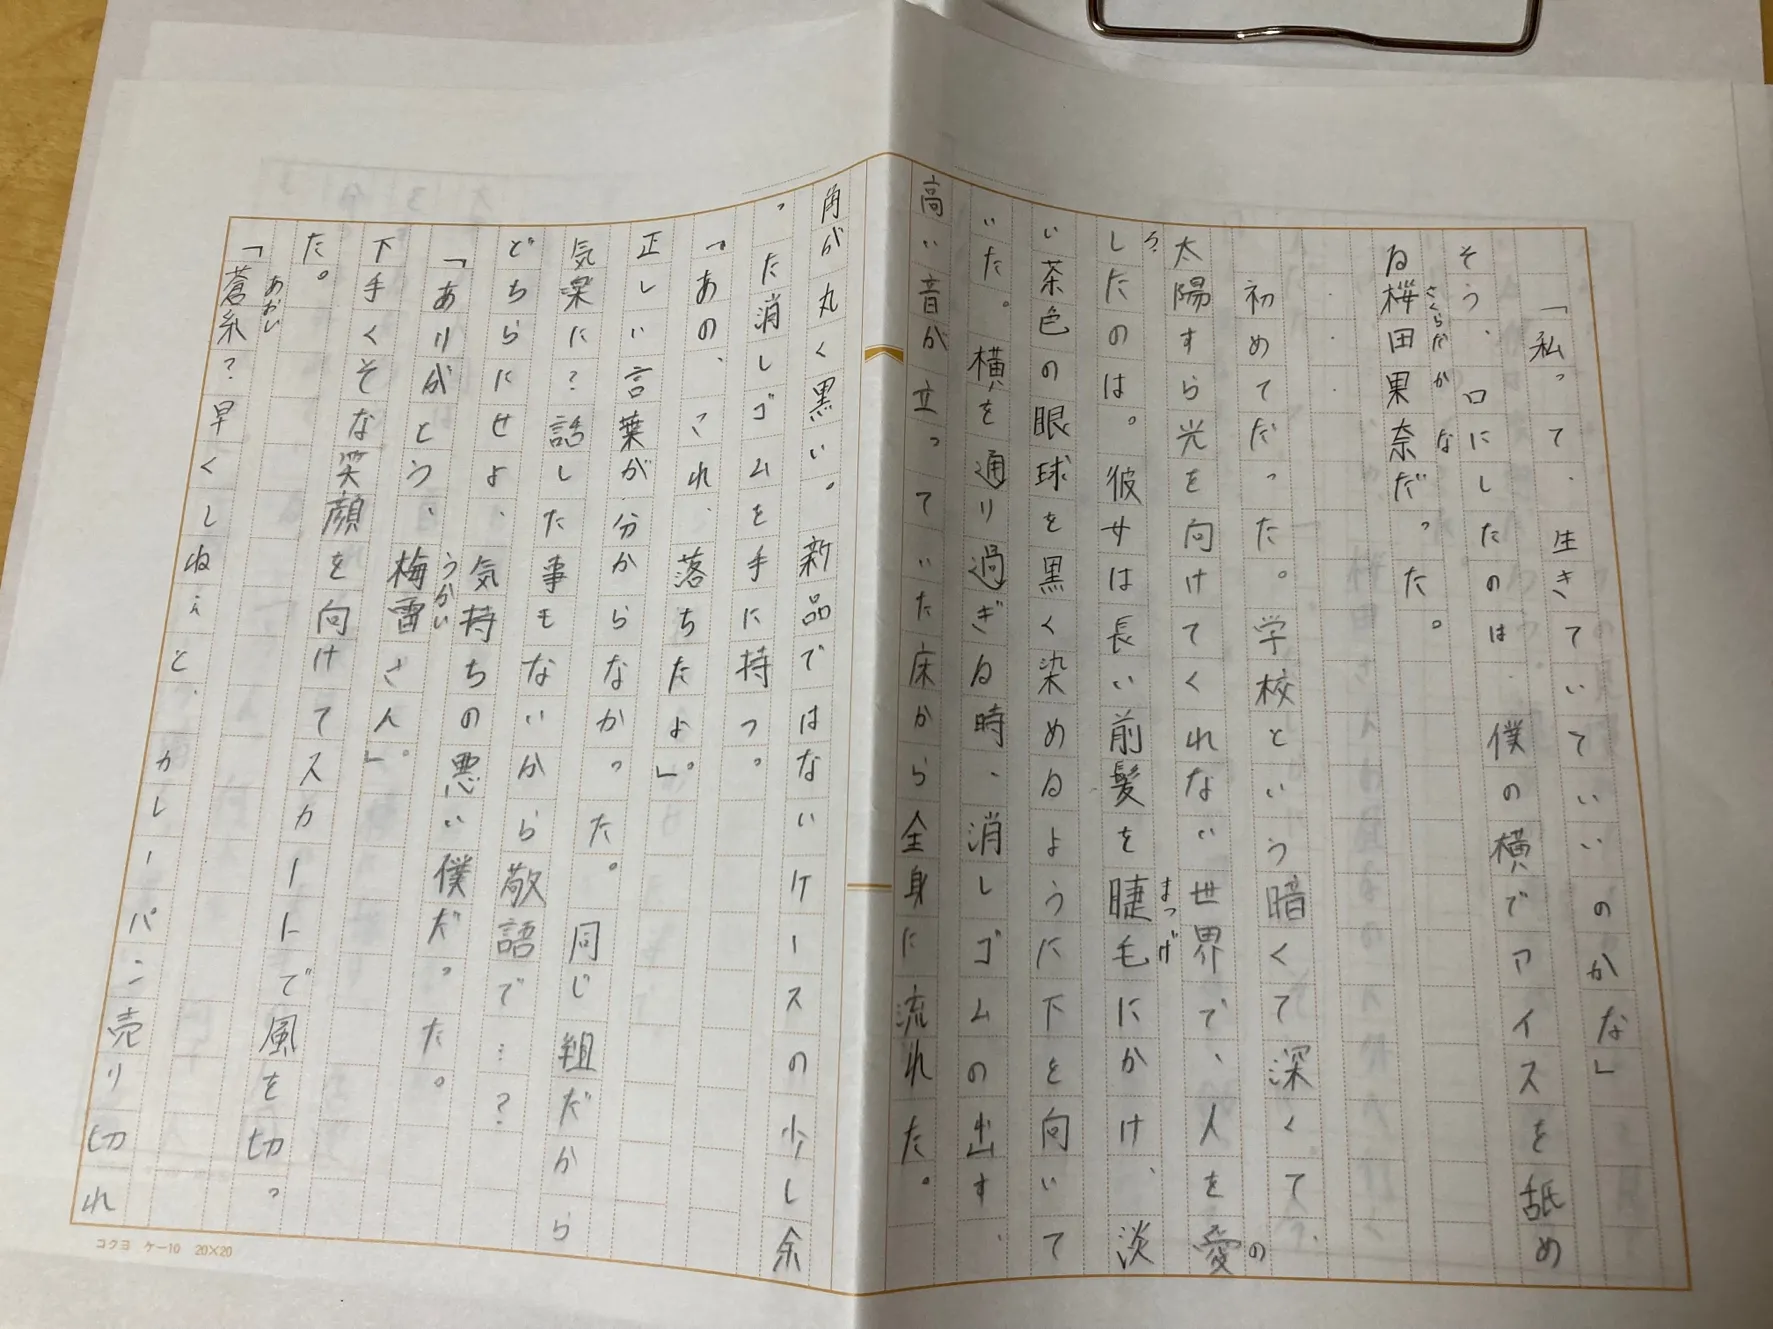 「私って、生きていていいのかな」
そう、口にしたのは、僕の横でアイスを舐め
る桜田果奈だった。
さくらだかな
・・・
初めてだった。学校という暗くて深くて、
太陽すら光を向けてくれない世界で、人を愛
の
ろ
したのは。彼女は長い前髪を睫毛にかけ、淡
まつげ
い茶色の眼球を黒く染めるように下を向いて
いた。横を通り過ぎる時、消しゴムの出す、
高い音が立っていた床から全身に流れた。
角が丸く黒い。新品ではないケースの少し余
った消しゴムを手に持つ。
「あの、これ、落ちたよ」。
正しい言葉が分からなかった。同じ組だから
気楽に?話した事もないから敬語で…?
どちらにせよ、気持ちの悪い僕だった。
「ありがとう、梅雷さん」。
うかい
下手くそな笑顔を向けてスカートで風を切っ
た。
「蒼糸?早くしねぇと、カレーパン売り切れ
あおい
コクヨ ケー10 20×20